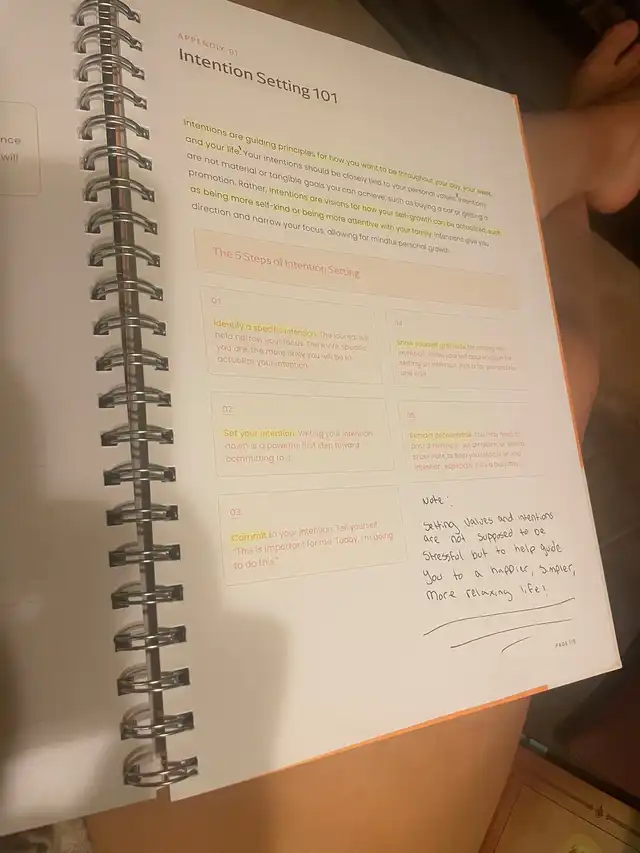 nce
will
APPENDIX 01
Intention Setting 101
Intentions are guiding principles for how you want to be throughout your day, your week,
and your life. Your intentions should be closely tied to your personal values. Intentions
are not material or tangible goals you can achieve, such as buying a car or getting a
promotion. Rather, intentions are visions for how your self-growth can be actualized, such
as being more self-kind or being more attentive with your family. Intentions give you
direction and narrow your focus, allowing for mindful personal growth.
The 5 Steps of Intention Setting
01
Identify a specific intention. The journal will
help narrow your focus. The more specific
you are, the more likely you will be to
actualize your intention.
02
Set your intention. Writing your intention
down is a powerful first step toward
committing to it.
03
Commit to your intention. Tell yourself
"This is important for me. Today, I'm going
to do this."
04
Show yourself gratitude for
setting
05
Remain accountable.
Note:
Setting values and intentions
are not supposed to be
stressful but to help guide
you to a happier, simpler,
more relaxing life!
PAGE